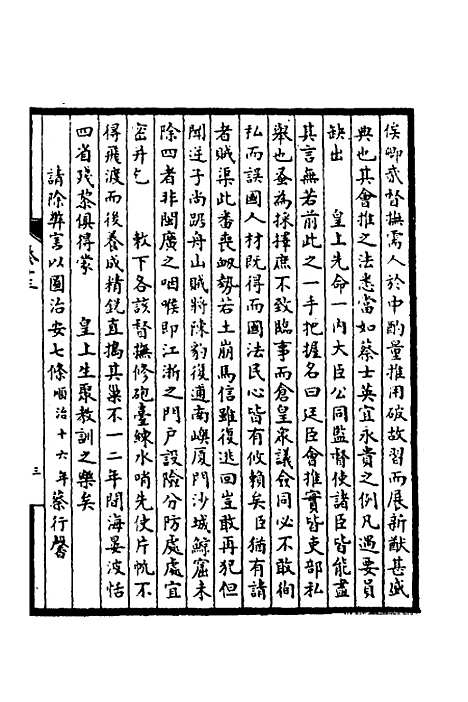 俟卿貳督撫需人於中酌量推用破故習而展新猷甚盛
典也其會推之法悉當如蔡士英宜永貴之例凡遇要員
缺出　　皇上先命一內大臣公同監督使諸臣皆能盡
其言無若前此之一手把握名曰廷臣會推實皆吏部私
舉也蚤為採擇庶不致臨事而倉皇衆議僉同必不敢徇
私而誤國人材既得而國法民心皆有攸賴矣臣猶有請
者賊渠此番喪衂勢若土崩馬信雖復逃回豈敢再犯但
聞逆子尚踞舟山賊將陳豹復遁南嶼厦門沙城鯨窟未
除四者非閩廣之咽喉即江浙之門戶設險分防處處宜
密并乞　　敕下各該督撫修砲臺鍊水哨先使片帆不
得飛渡而後養成精銳直搗其巢不一二年間海晏波恬
四省殘黎俱得蒙　　皇上生聚教訓之樂矣
請除弊害以圖治安七條順治十六年蔡行馨
卷十三
三